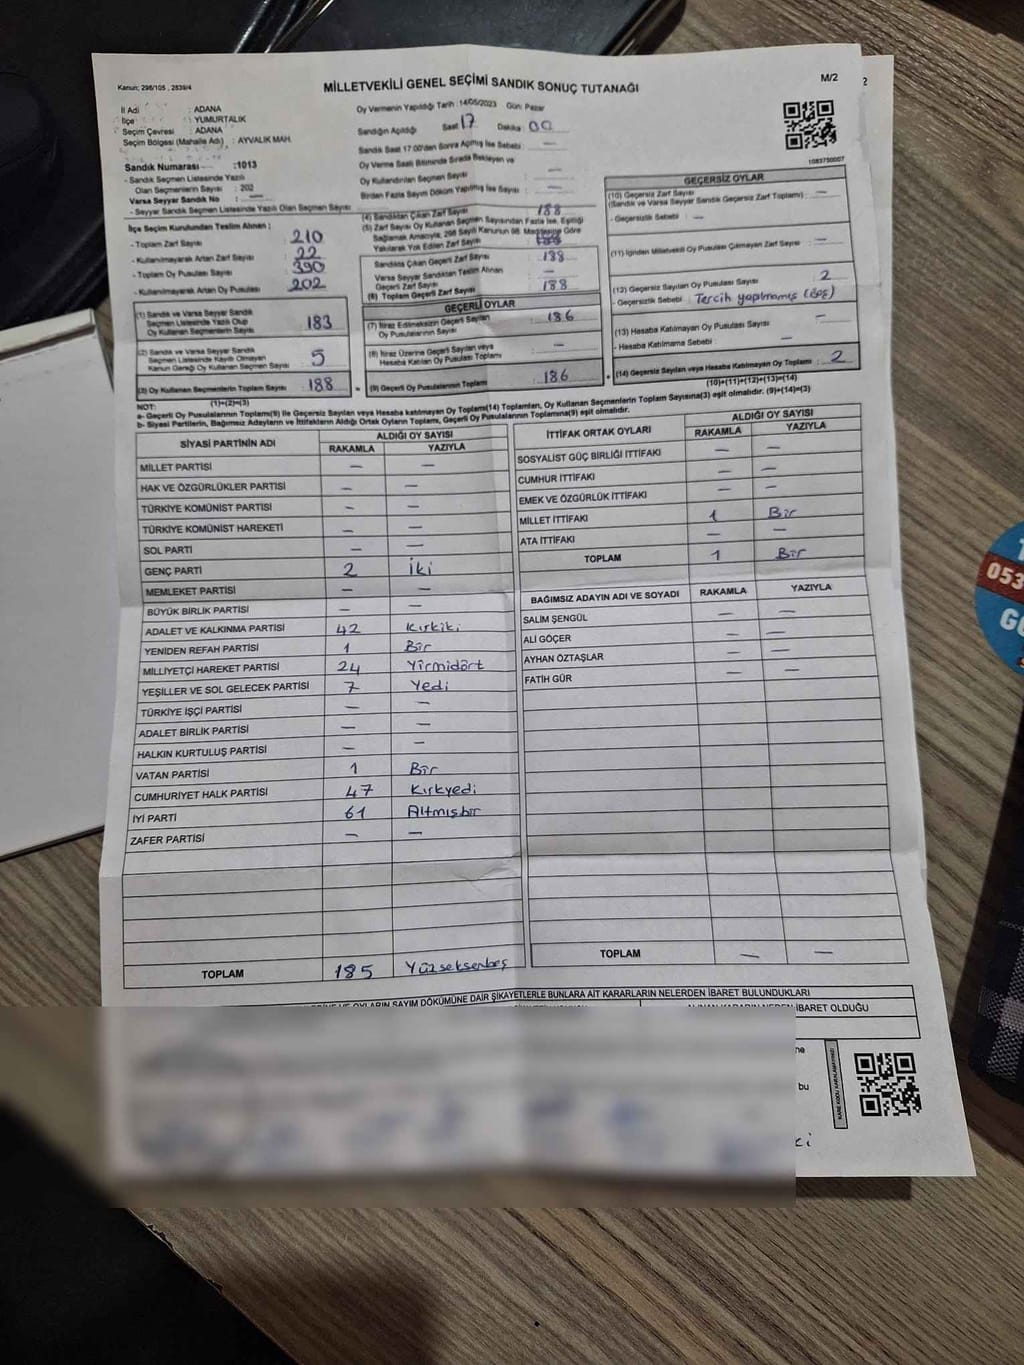 Kanun: 298/105 , 2839/4
MİLLETVEKİLİ GENEL SEÇİMİ SANDIK SONUÇ TUTANAĞI
M/2
2
İl Adı : ADANA
İlçe : YUMURTALIK
Seçim Çevresi : ADANA
Seçim Bölgesi (Mahalle Adı) : AYVALIK MAH.
Sandık Numarası :1013
- Sandık Seçmen Listesinde Yazılı
Olan Seçmenlerin Sayısı : 202
Varsa Seyyar Sandık No : —
- Seyyar Sandık Seçmen Listesinde Yazılı Olan Seçmen Sayısı
Oy Vermenin Yapıldığı Tarih :14/05/2023 Gün: Pazar
Sandığın Açıldığı Saat 17 Dakika 00
Sandık Saat 17:00'den Sonra Açılmış İse Sebebi : —
Oy Verme Saati Bitiminde Sırada Bekleyen ve
Oy Kullandırılan Seçmen Sayısı : —
Birden Fazla Sayım Döküm Yapılmış İse Sayısı : —
1083750007
İlçe Seçim Kurulundan Teslim Alınan ;
- Toplam Zarf Sayısı : 210
- Kullanılmayarak Artan Zarf Sayısı : 22
- Toplam Oy Pusulası Sayısı : 390
- Kullanılmayarak Artan Oy Pusulası : 202
(1) Sandık ve Varsa Seyyar Sandık
Seçmen Listesinde Yazılı Olup
Oy Kullanan Seçmenlerin Sayısı : 183
(2) Sandık ve Varsa Seyyar Sandık
Seçmen Listesinde Kayıtlı Olmayan
Kanun Gereği Oy Kullanan Seçmen Sayısı : 5
(3) Oy Kullanan Seçmenlerin Toplam Sayısı : 188
(1)+(2)=(3)
(4) Sandıktan Çıkan Zarf Sayısı : 188
(5) Zarf Sayısı Oy Kullanan Seçmen Sayısından Fazla İse, Eşitliği
Sağlamak Amacıyla, 298 Sayılı Kanunun 98. Maddesine Göre
Yakılarak Yok Edilen Zarf Sayısı :
Sandıkta Çıkan Geçerli Zarf Sayısı : 188
Varsa Seyyar Sandıktan Teslim Alınan
Geçerli Zarf Sayısı : —
(6) Toplam Geçerli Zarf Sayısı : 188
GEÇERLİ OYLAR
(7) İtiraz Edilmeksizin Geçerli Sayılan
Oy Pusulalarının Sayısı : 186
(8) İtiraz Üzerine Geçerli Sayılan veya
Hesaba Katılan Oy Pusulası Toplamı : —
= (9) Geçerli Oy Pusulalarının Toplamı : 186
GEÇERSİZ OYLAR
(10) Geçersiz Zarf Sayısı : —
(Sandık ve Varsa Seyyar Sandık Geçersiz Zarf Toplamı)
- Geçersizlik Sebebi : —
(11) İçinden Milletvekili Oy Pusulası Çıkmayan Zarf Sayısı : —
(12) Geçersiz Sayılan Oy Pusulası Sayısı : 2
- Geçersizlik Sebebi : Tercih yapılmamış (Boş)
(13) Hesaba Katılmayan Oy Pusulası Sayısı : —
- Hesaba Katılmama Sebebi : —
+ (14) Geçersiz Sayılan veya Hesaba Katılmayan Oy Toplamı : 2
(10)+(11)+(12)+(13)=(14)
NOT:
a- Geçerli Oy Pusulaları Toplamı(9) ile Geçersiz Sayılan veya Hesaba katılmayan Oy Toplamı(14) Toplamları, Oy Kullanan Seçmenlerin Toplam Sayısına(3) eşit olmalıdır. (9)+(14)=(3)
b- Siyasi Partilerin, Bağımsız Adayların ve İttifakların Aldığı Ortak Oyların Toplamı, Geçerli Oy Pusulalarının Toplamına(9) eşit olmalıdır.
SİYASİ PARTİNİN ADI ALDIĞI OY SAYISI
RAKAMLA YAZIYLA
MİLLET PARTİSİ — —
HAK VE ÖZGÜRLÜKLER PARTİSİ — —
TÜRKİYE KOMÜNİST PARTİSİ — —
TÜRKİYE KOMÜNİST HAREKETİ — —
SOL PARTİ — —
GENÇ PARTİ 2 İki
MEMLEKET PARTİSİ — —
BÜYÜK BİRLİK PARTİSİ — —
ADALET VE KALKINMA PARTİSİ 42 Kırkiki
YENİDEN REFAH PARTİSİ 1 Bir
MİLLİYETÇİ HAREKET PARTİSİ 24 Yirmidört
YEŞİLLER VE SOL GELECEK PARTİSİ 7 Yedi
TÜRKİYE İŞÇİ PARTİSİ — —
ADALET BİRLİK PARTİSİ — —
HALKIN KURTULUŞ PARTİSİ — —
VATAN PARTİSİ 1 Bir
CUMHURİYET HALK PARTİSİ 47 Kırkyedi
İYİ PARTİ 61 Altmışbir
ZAFER PARTİSİ — —
TOPLAM 185 Yüzseksenbeş
İTTİFAK ORTAK OYLARI ALDIĞI OY SAYISI
RAKAMLA YAZIYLA
SOSYALİST GÜÇ BİRLİĞİ İTTİFAKI — —
CUMHUR İTTİFAKI — —
EMEK VE ÖZGÜRLÜK İTTİFAKI — —
MİLLET İTTİFAKI 1 Bir
ATA İTTİFAKI — —
TOPLAM 1 Bir
BAĞIMSIZ ADAYIN ADI VE SOYADI RAKAMLA YAZIYLA
SALİM ŞENGÜL — —
ALİ GÖÇER — —
AYHAN ÖZTAŞLAR — —
FATİH GÜR — —
TOPLAM — —
VE OYLARIN SAYIM DÖKÜMÜNE DAİR ŞİKAYETLERLE BUNLARA AİT KARARLARIN NELERDEN İBARET BULUNDUKLARI
ALINAN KARARIN NEDEN İBARET OLDUĞU
ne
bu
KARE KODU KARALAMAYINIZ!
ki
053